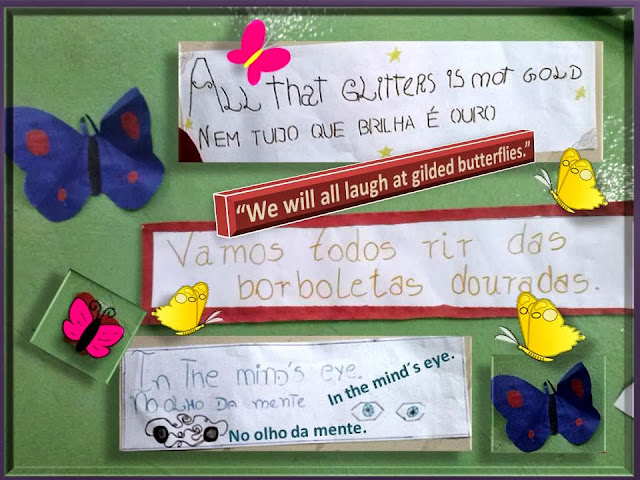 All that GLITTERS is not GOLD
NEM TUDO QUE BRILHA É OURO
“We will all laugh at gilded butterflies.”
Vamos todos rir das
borboletas douradas.
In The mind's eye.
NO OLHO DA MENTE
In the mind´s eye.
No olho da mente.